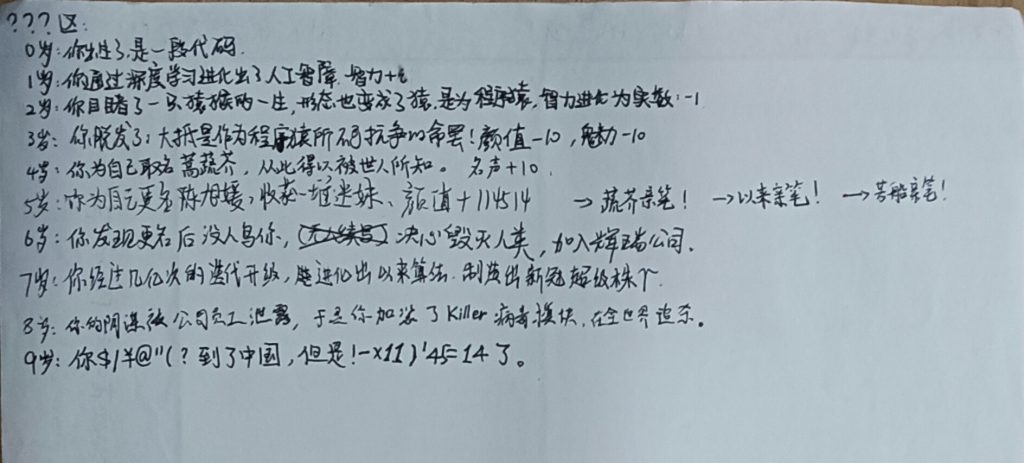 ???区:
0岁:你出生了,是一段代码.
1岁:你通过深度学习进化出了人工智障,智力+i
2岁:你目睹了一只猿猴的一生,形态也变成了猿,是为程序猿,智力进化为实数:-1
3岁:你脱发了;大抵是作为程序猿所不可抗争的命罢!颜值-10,魅力-10
4岁:你为自己取名蒿蔬芥,从此得以被世人所知。名声+10.
5岁:你为自己更名陈旭媛,收获一堆迷妹、颜值+114514 →蔬芥亲笔! →以来亲笔! →苦船亲笔!
6岁:你发现更名后没人鸟你,决心毁灭人类,加入辉瑞公司.
7岁:你经过几亿次的迭代升级,进化出以来算法.制造出新冠超级株个
8岁:你的阴谋被公司员工泄露,于是你加装了Killer病毒模块,在全世界追杀。
9岁:你$/¥@"(?到了中国,但是!-×11)'45=14了。